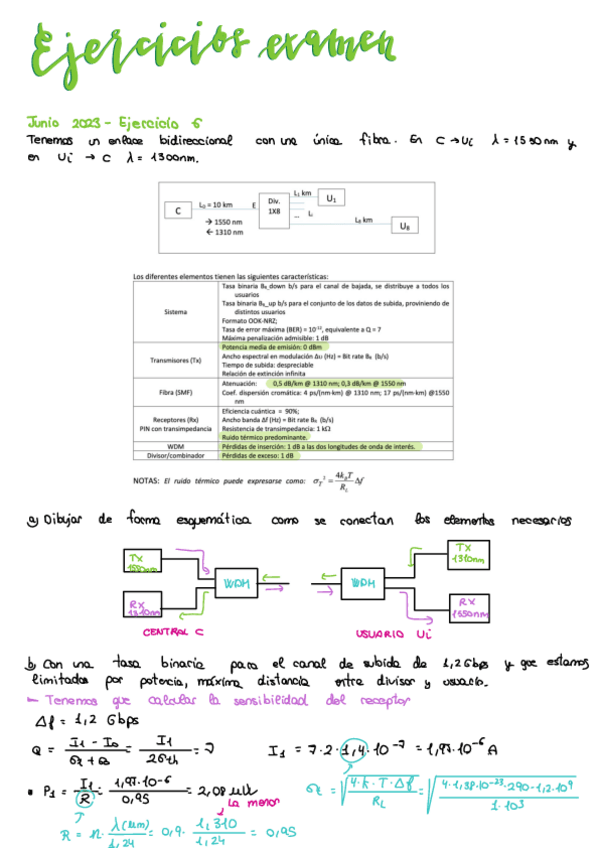 Ejercicios examen
Junio 2023 - Ejercicio 6
Tenemos un enlace bidireccional con una única fibra. En C → Ui λ = 1550nm y
en Ui → C λ = 1300nm.
C
L₀ = 10 km
→ 1550 nm
← 1310 nm
E
Div.
1X8
L₁ km
U₁
... Lᵢ
L₈ km
U₈
Los diferentes elementos tienen las siguientes características:
Sistema
Tasa binaria B_R_down b/s para el canal de bajada, se distribuye a todos los
usuarios
Tasa binaria B_R_up b/s para el conjunto de los datos de subida, proviniendo de
distintos usuarios
Formato OOK-NRZ;
Tasa de error máxima (BER) = 10⁻¹², equivalente a Q = 7
Máxima penalización admisible: 1 dB
Transmisores (Tx)
Potencia media de emisión: 0 dBm
Ancho espectral en modulación Δυ (Hz) = Bit rate B_R (b/s)
Tiempo de subida: despreciable
Relación de extinción infinita
Fibra (SMF)
Atenuación: 0,5 dB/km @ 1310 nm; 0,3 dB/km @ 1550 nm
Coef. dispersión cromática: 4 ps/(nm·km) @ 1310 nm; 17 ps/(nm·km) @1550
nm
Receptores (Rx)
PIN con transimpedancia
Eficiencia cuántica = 90%;
Ancho banda Δf (Hz) = Bit rate B_R (b/s)
Resistencia de transimpedancia: 1 kΩ
Ruido térmico predominante.
WDM
Pérdidas de inserción: 1 dB a las dos longitudes de onda de interés.
Divisor/combinador
Pérdidas de exceso: 1 dB
NOTAS: El ruido térmico puede expresarse como: σ_T² = 4k_BT/R_L Δf
a) Dibujar de forma esquemática como se conectan los elementos necesarios
TX
1550nm
RX
1310nm
WDM
WDM
TX
1310nm
RX
1550nm
CENTRAL C
USUARIO Ui
b) Con una tasa binaria para el canal de subida de 1,2 Gbps y que estamos
limitados por potencia, máxima distancia entre divisor y usuario.
Tenemos que calcular la sensibilidad del receptor
Δf = 1,2 Gbps
Q = (I₁ - I₀)/(σ₁ + σ₀) = I₁/(2σth) = 7
I₁ = 7·2·1,4·10⁻⁷ = 1,97·10⁻⁶ A
• P₁ = I₁/R = 1,97·10-6/0,95 = 2,08 µW
La menor
σt = √(4·k·T·Δf/R_L) = √(4·1,38·10⁻²³·290·1,2·10⁹/1·10³)
R = η · λ(um)/1,24 = 0,9 · 1,310/1,24 = 0,95